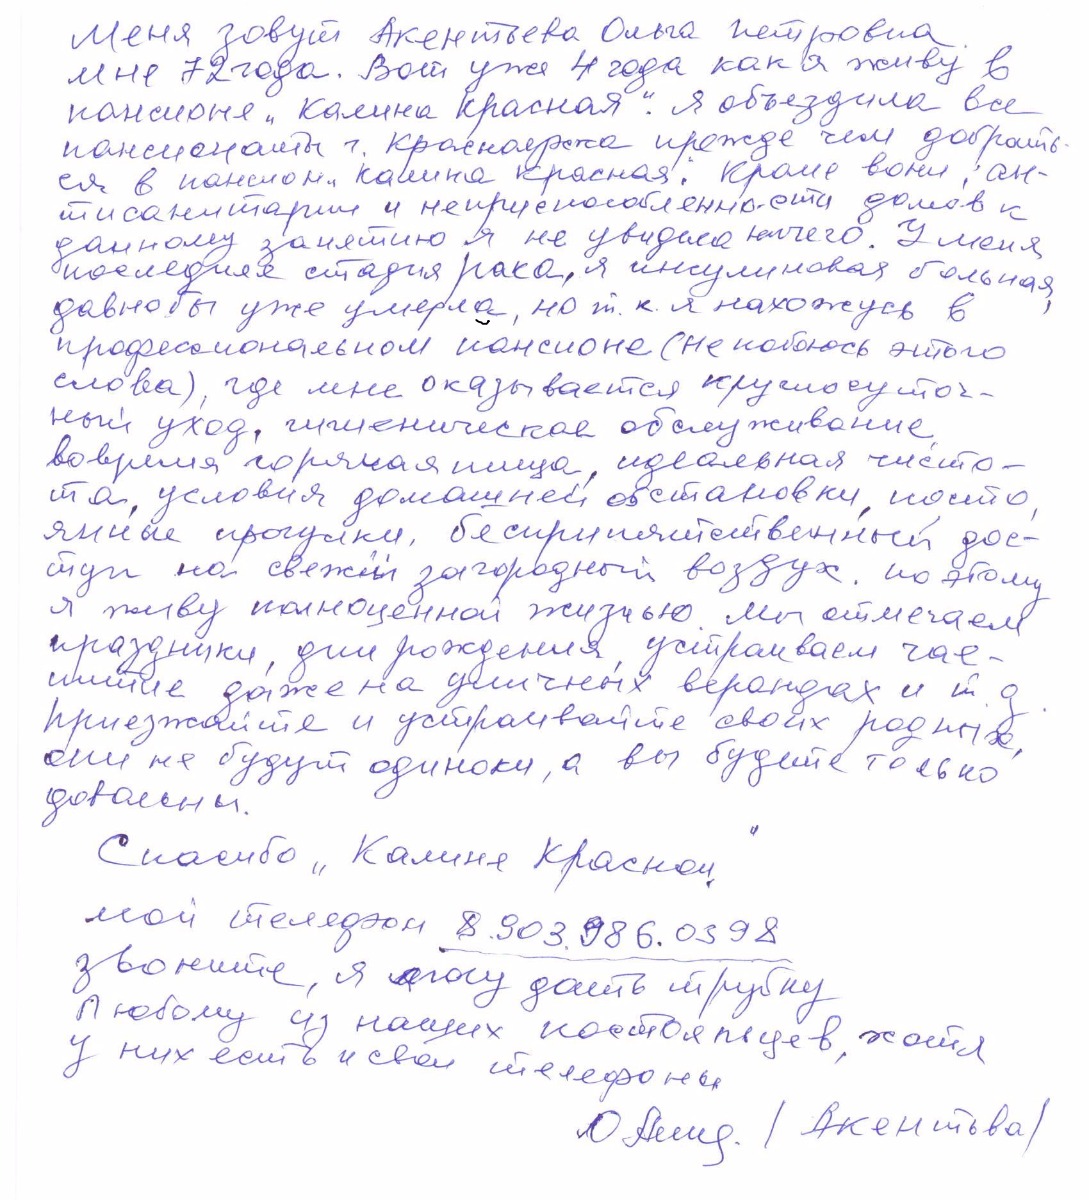 Меня зовут Акентьева Ольга Петровна.
мне 72 года. Вот уже 4 года как я живу в
пансионе „Калина красная". Я объездила все
пансионаты г. Красноярска прежде чем добрать-
ся в пансион „Калина красная". Кроме вони, ан-
тисанитарии и неприспособленности домов к
данному занятию я не увидела ничего. У меня
последняя стадия рака, я инсулиновая больная,
давно бы уже умерла, но т.к. я нахожусь в
профессиональном пансионе (не побоюсь этого
слова), где мне оказывается круглосуточ-
ный уход, гигиеническое обслуживание,
вовремя горячая пища, идеальная чисто-
та, условия домашней обстановки, посто,
янные прогулки, беспрепятственный дос-
туп на свежий загородный воздух. поэтому
я живу полноценной жизнью. Мы отмечаем
праздники, дни рождения, устраиваем чае-
питие даже на уличных верандах и т.д.
Приезжайте и устраивайте своих родных,
они не будут одиноки, а вы будете только
довольны.
Спасибо „Калине Красной"
мой телефон 8.903.986.0398
звоните, я могу дать трубку
любому из наших постояльцев, хотя
у них есть и свои телефоны
/ Акентьва /